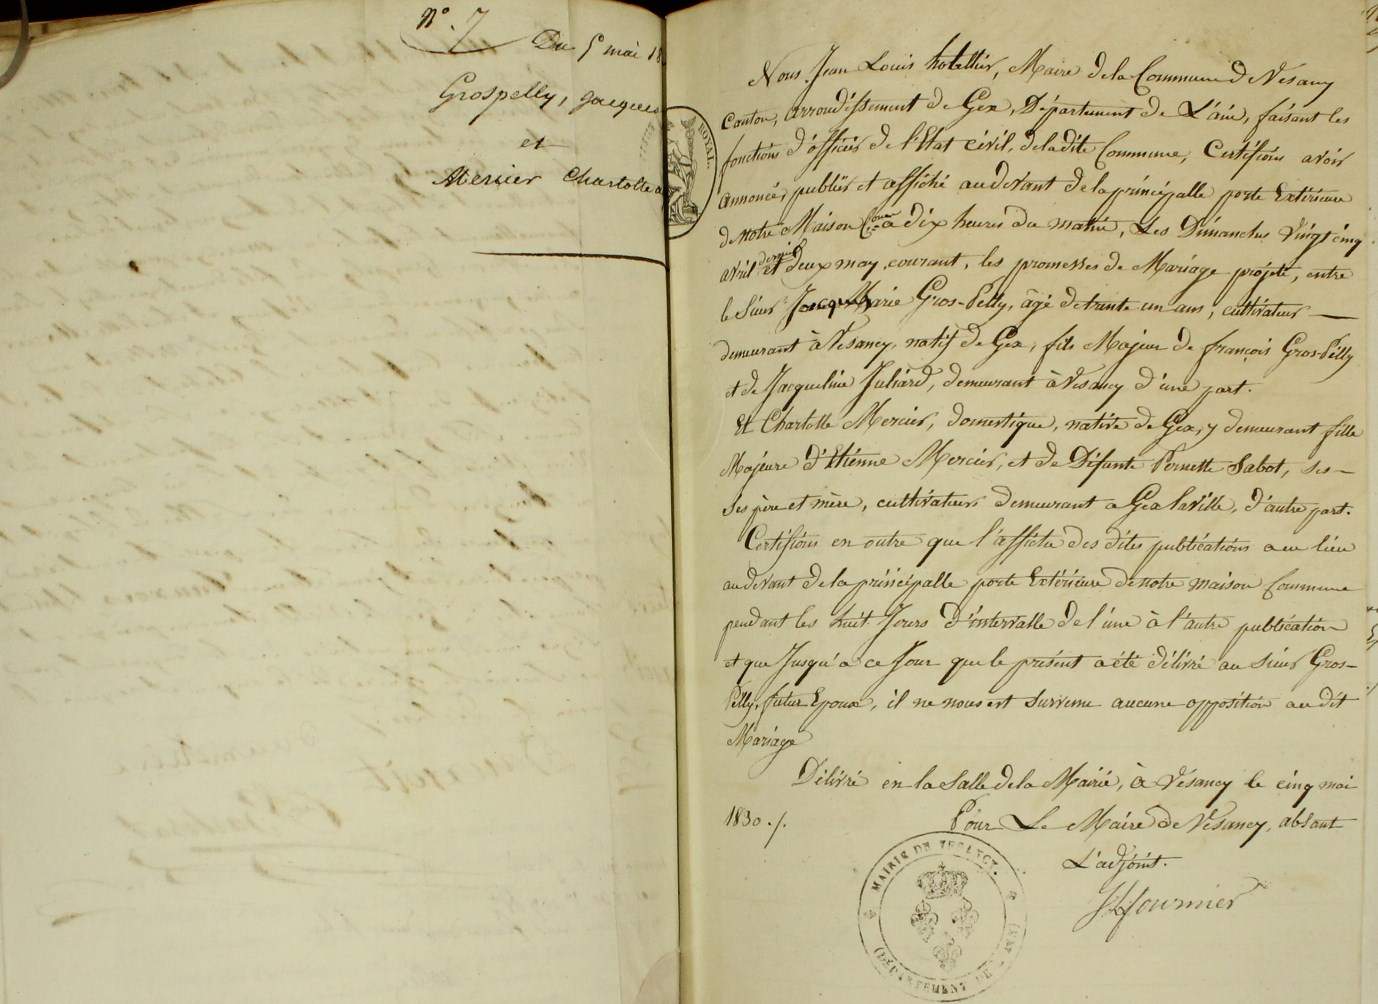 N° 7
Du 5 mai 18
Grospelly, Jacques
et
Mercier Charlotte
ROYAL.
Nous Jean Louis hotellier, Maire de la Commune de Vésancy
Canton, arrondissement de Gex, Département de L'ain, faisant les
fonctions d'officier de l'Etat civil, de la dite Commune, Certifions avoir
annoncé, publiér et affiché au devant de la principalle porte Extérieure
de notre Maison Cne a dix heures du matin, Les Dimanches Vingt cinq
avril dernier et deux may courant, les promesses de Mariage projeté, entre
le Sieur Jacques Marie Gros-Pelly, âgé de trente un ans, cultivateur —
demeurant à Vésancy, natif de Gex, fils Majeur de françois Gros-Pélly
et de Jacqueline Juliard, demeurant à Vésancy d'une part.
Et Charlotte Mercier, domestique, native de Gex, y demeurant fille
Majeure d'Etiénne Mercier, et de Défunte Pernette Sabot, ses —
ses père et mère, cultivateurs demeurant a Gex la ville, d'autre part.
Certifions en outre que l'affiche des dites publications a eu lieu
au devant de la principalle porte Extérieure de notre maison Commune
pendant les huit Jours d'intervalle de l'une à l'autre publication
et que Jusqu'a ce Jour que le présent a été délivré au sieur Gros-
Pelly, futur Epoux, il ne nous est survenu aucune opposition au dit
Mariage
Délivré en la Salle de la Mairié, à Vésancy le cinq mai
1830 ./.
Pour Le Maire de Vésancy, absant
L'adjoint.
fournier
MAIRIE DE VESANCY.
(DÉPARTEMENT DE L'AIN)